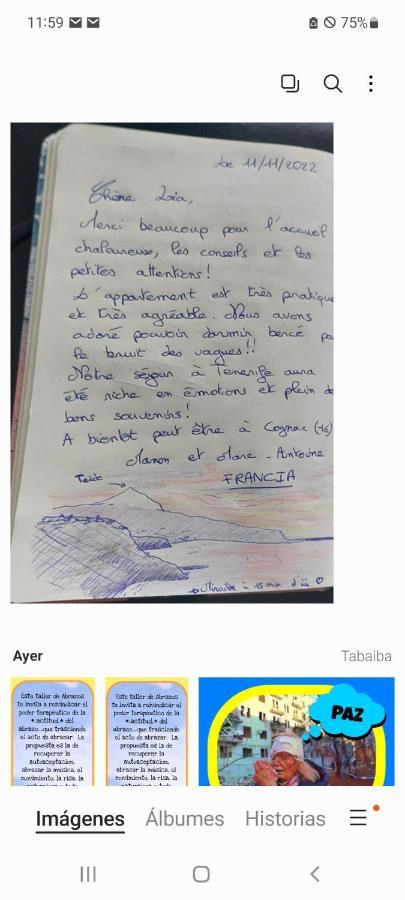 11:59
75%
Le 11/11/2022
Chère Loïa,
Merci beaucoup pour l'accueil
chaleureux, les conseils et les
petites attentions!
L'appartement est très pratique
et très agréable. Nous avons
adoré pouvoir dormir bercé pa
le bruit des vagues!!
Notre séjour à Tenerife aura
été riche en émotions et plein de
bons souvenirs!
A bientôt peut être à Cognac (16)
Manon et Marc-Antoine
FRANCIA
Teide
Mirador à 15 min d'ici
Ayer
Tabaiba
Este taller de Abrazos
te invita a reivindicar el
poder terapéutico de la
*actitud* del
abrazo...que trasciende
el acto de abrazar. La
propuesta es la de
recuperar la
autoaceptación,
abrazar la música, el
movimiento, la risa, la
Este taller de Abrazos
te invita a reivindicar el
poder terapéutico de la
*actitud* del
abrazo...que trasciende
el acto de abrazar. La
propuesta es la de
recuperar la
autoaceptación,
abrazar la música, el
movimiento, la risa, la
PAZ
Imágenes
Álbumes
Historias